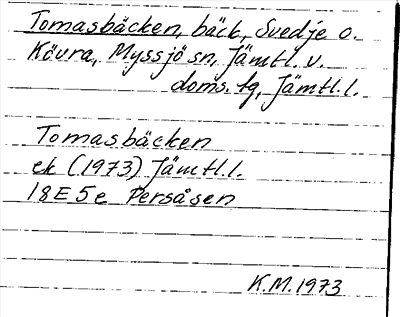 Tomasbäcken, bäck, Svedje o.
Kövra, Myssjö sn, Jämtl. v.
doms. tg, Jämtl.l.
Tomasbäcken
ek (1973) Jämtl.l.
18E 5e Persåsen
K.M. 1973